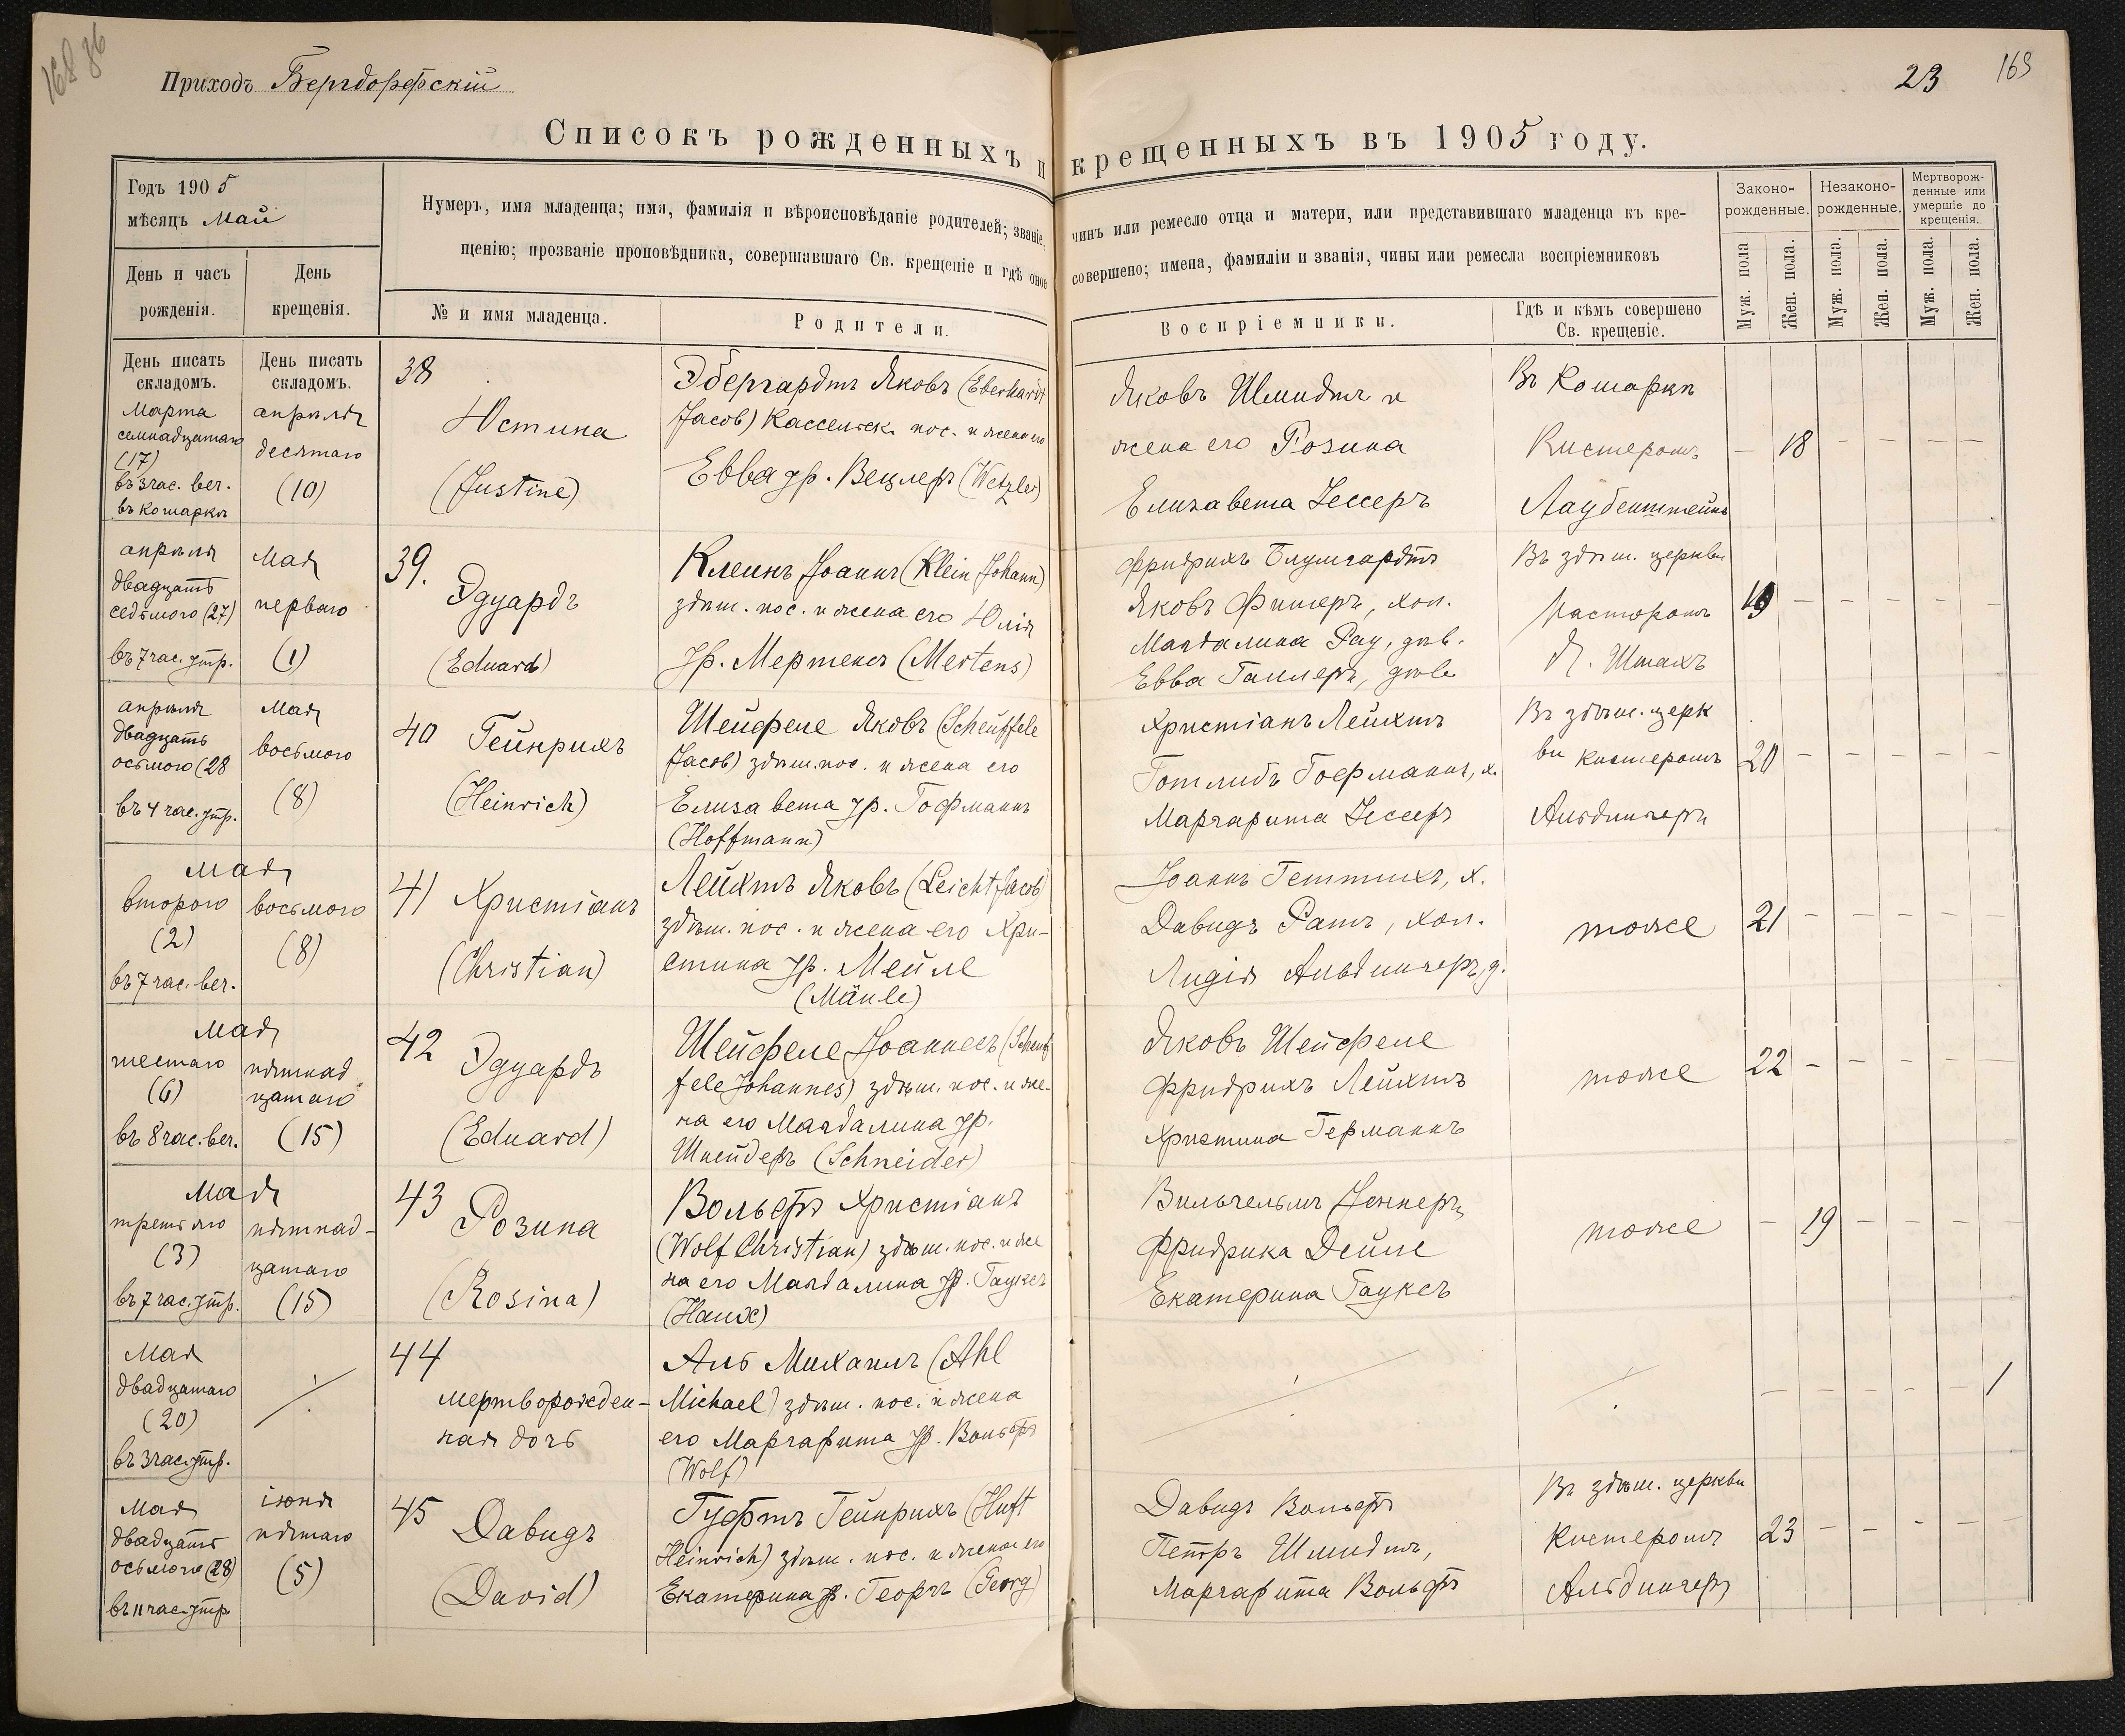 168 86
Приходъ Бергдорфскій
23 169
Списокъ рожденныхъ и крещенныхъ въ 1905 году.
Годъ 1905
мѣсяцъ Май
День и часъ рожденія.
День крещенія.
Нумеръ, имя младенца; имя, фамилія и вѣроисповѣданіе родителей; званіе, чинъ или ремесло отца и матери, или представившаго младенца къ кре-
щенію; прозваніе проповѣдника, совершавшаго Св. крещеніе и гдѣ оное совершено; имена, фамиліи и званія, чины или ремесла воспріемниковъ
№ и имя младенца.
Родители.
Воспріемники.
Гдѣ и кѣмъ совершено
Св. крещеніе.
Законо-
рожденные.
Незаконо-
рожденные.
Мертворож-
денные или
умершіе до
крещенія.
Муж. пола
Жен. пола.
Муж. пола.
Жен. пола.
Муж. пола.
Жен. пола.
День писать
складомъ.
День писать
складомъ.
марта
семнадцатаго
(17)
въ 3 час. веч.
въ Кошаркѣ
апрѣля
десятаго
(10)
38
Юстина
(Justine)
Эбергардтъ Яковъ (Eberhardt
Jacob) Кассельск. пос. и жена его
Евва ур. Вецлеръ (Wetzler)
Яковъ Шмидтъ и
жена его Розина
Елизавета Зессеръ
Въ Кошаркѣ
Кистеромъ
Лаубенштейнъ
— 18 — — — —
апрѣля
двадцать
седьмого (27)
въ 7 час. утр.
мая
перваго
(1)
39.
Эдуардъ
(Eduard)
Клеинъ Іоаннъ (Klein Johann)
здѣш. пос. и жена его Юлія
ур. Мертенсъ (Mertens)
Фридрихъ Блумгардтъ
Яковъ Фишеръ, хол.
Магдалина Рау, дѣв.
Евва Гаилеръ, дѣв.
Въ здѣш. церкви
Пасторомъ
Л. Штахъ
19 — — — — —
апрѣля
двадцать
осьмого (28
въ 4 час. утр.
мая
восьмого
(8)
40 Гейнрихъ
(Heinrich)
Шейфеле Яковъ (Scheuffele
Jacob) здѣш. пос. и жена его
Елизавета ур. Гофманнъ
(Hoffmann)
Христіанъ Лейхтъ
Готлибъ Гофманнъ, х.
Маргарита Зессеръ
Въ здѣш. церк
ви кистеромъ
Альдингеръ
20 — — — — —
мая
второго
(2)
въ 7 час. веч.
восьмого
(8)
41 Христіанъ
(Christian)
Лейхтъ Яковъ (Leicht Jacob)
здѣш. пос. и жена его Хри-
стина ур. Мейле
(Mäule)
Іоаннъ Геттихъ, х.
Давидъ Ратъ, хол.
Лидія Альдингеръ, д.
тоже
21 — — — — —
мая
шестаго
(6)
въ 8 час. веч.
пятнад
цатаго
(15)
42
Эдуардъ
(Eduard)
Шейфеле Іоаннесъ (Scheuf
fele Johannes) здѣш. пос. и же-
на его Магдалина ур.
Шнейдеръ (Schneider)
Яковъ Шейфеле
Фридрихъ Лейхтъ
Христина Германнъ
тоже
22 — — — — —
мая
третьяго
(3)
въ 7 час. утр.
пятнад-
цатаго
(15)
43
Розина
(Rosina)
Вольфъ Христіанъ
(Wolf Christian) здѣш. пос. и же
на его Магдалина ур. Гауксъ
(Haux)
Вильгельмъ Іеннеръ
Фридрика Дейле
Екатерина Гауксъ
тоже
— 19 — — — —
Мая
двадцатаго
(20)
въ 3 час. утр.
44
мертворожден-
ная дочь
Аль Михаилъ (Ahl
Michael) здѣш. пос. и жена
его Маргарита ур. Вольфъ
(Wolf)
— — — — — 1
Мая
двадцать
осьмого (28)
въ 11 час. утр
іюня
пятаго
(5)
45
Давидъ
(David)
Гуфтъ Гейнрихъ (Huft
Heinrich) здѣш. пос. и жена его
Екатерина ур. Георгъ (Georg)
Давидъ Вольфъ
Петръ Шмидтъ,
Маргарита Вольфъ
Въ здѣш. церкви
Кистеромъ
Альдингеръ
23 — — — — —